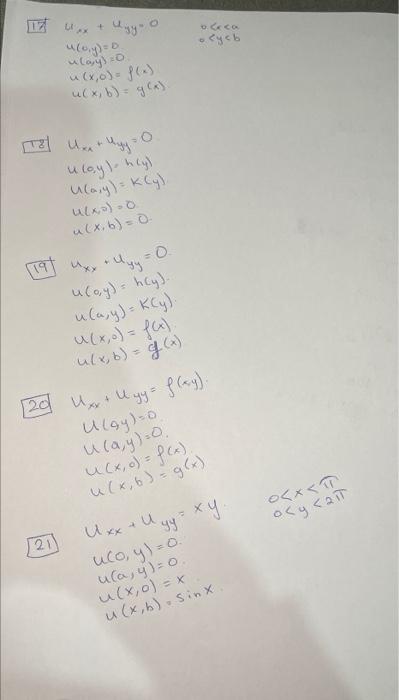 17 uxx + uyy = 0 0<x<a
u(0,y)=0. 0<y<b
u(a,y)=0.
u(x,0)= f(x)
u(x,b)= g(x).
18 uxx + uyy = 0
u(0,y)= h(y)
u(a,y)= K(y).
u(x,0)=0.
u(x,b)=0.
19 uxx + uyy = 0.
u(0,y)= h(y).
u(a,y)= K(y).
u(x,0)= f(x).
u(x,b)= g(x).
20 uxx + uyy = f(x,y).
u(0,y)=0.
u(a,y)=0.
u(x,0)= f(x).
u(x,b)= g(x)
21 uxx + uyy = xy. 0<x<π
u(0,y)=0. 0<y<2π
u(a,y)=0.
u(x,0)= x.
u(x,b)= sinx.